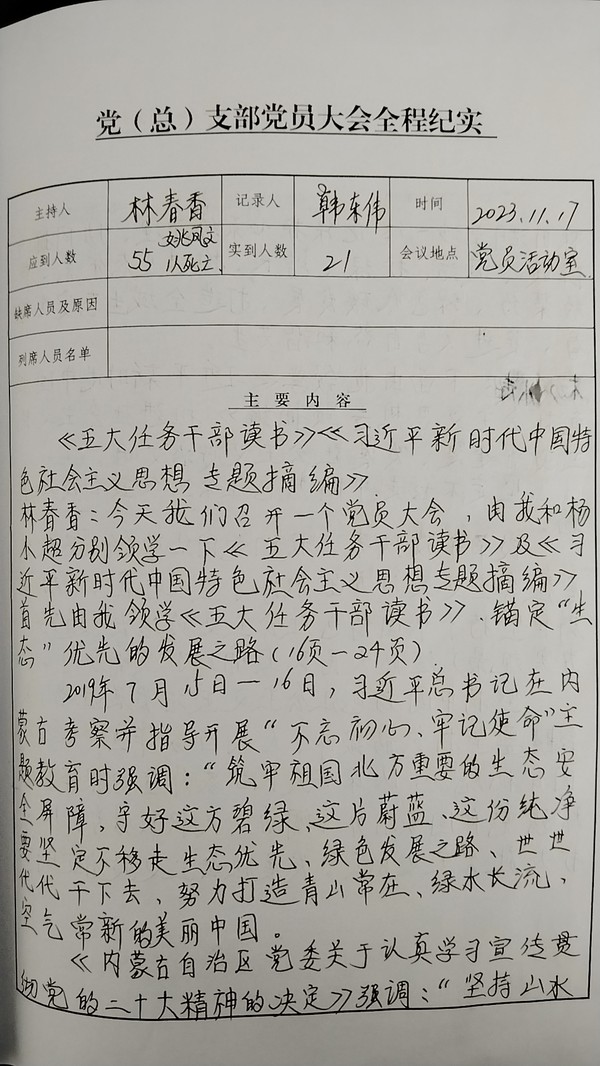 党（总）支部党员大会全程纪实
主持人 林春香 记录人 韩东伟 时间 2023.11.17
应到人数 55 姚凤文 以死亡 实到人数 21 会议地点 党员活动室
缺席人员及原因
列席人员名单
主要内容
《五大任务干部读书》《习近平新时代中国特
色社会主义思想专题摘编》
林春香：今天我们召开一个党员大会，由我和杨
小超分别领学一下《五大任务干部读书》及《习
近平新时代中国特色社会主义思想专题摘编》
首先由我领学《五大任务干部读书》、锚定“生
态”优先的发展之路（16页—24页）
2019年7月15日—16日，习近平总书记在内
蒙古考察并指导开展“不忘初心、牢记使命”主
题教育时强调：“筑牢祖国北方重要的生态安
全屏障，守好这方碧绿、这片蔚蓝、这份纯净
要坚定不移走生态优先、绿色发展之路、世世
代代干下去，努力打造青山常在、绿水长流、
空气常新的美丽中国。
《内蒙古自治区党委关于认真学习宣传贯
彻党的二十大精神的决定》强调：“坚持山水